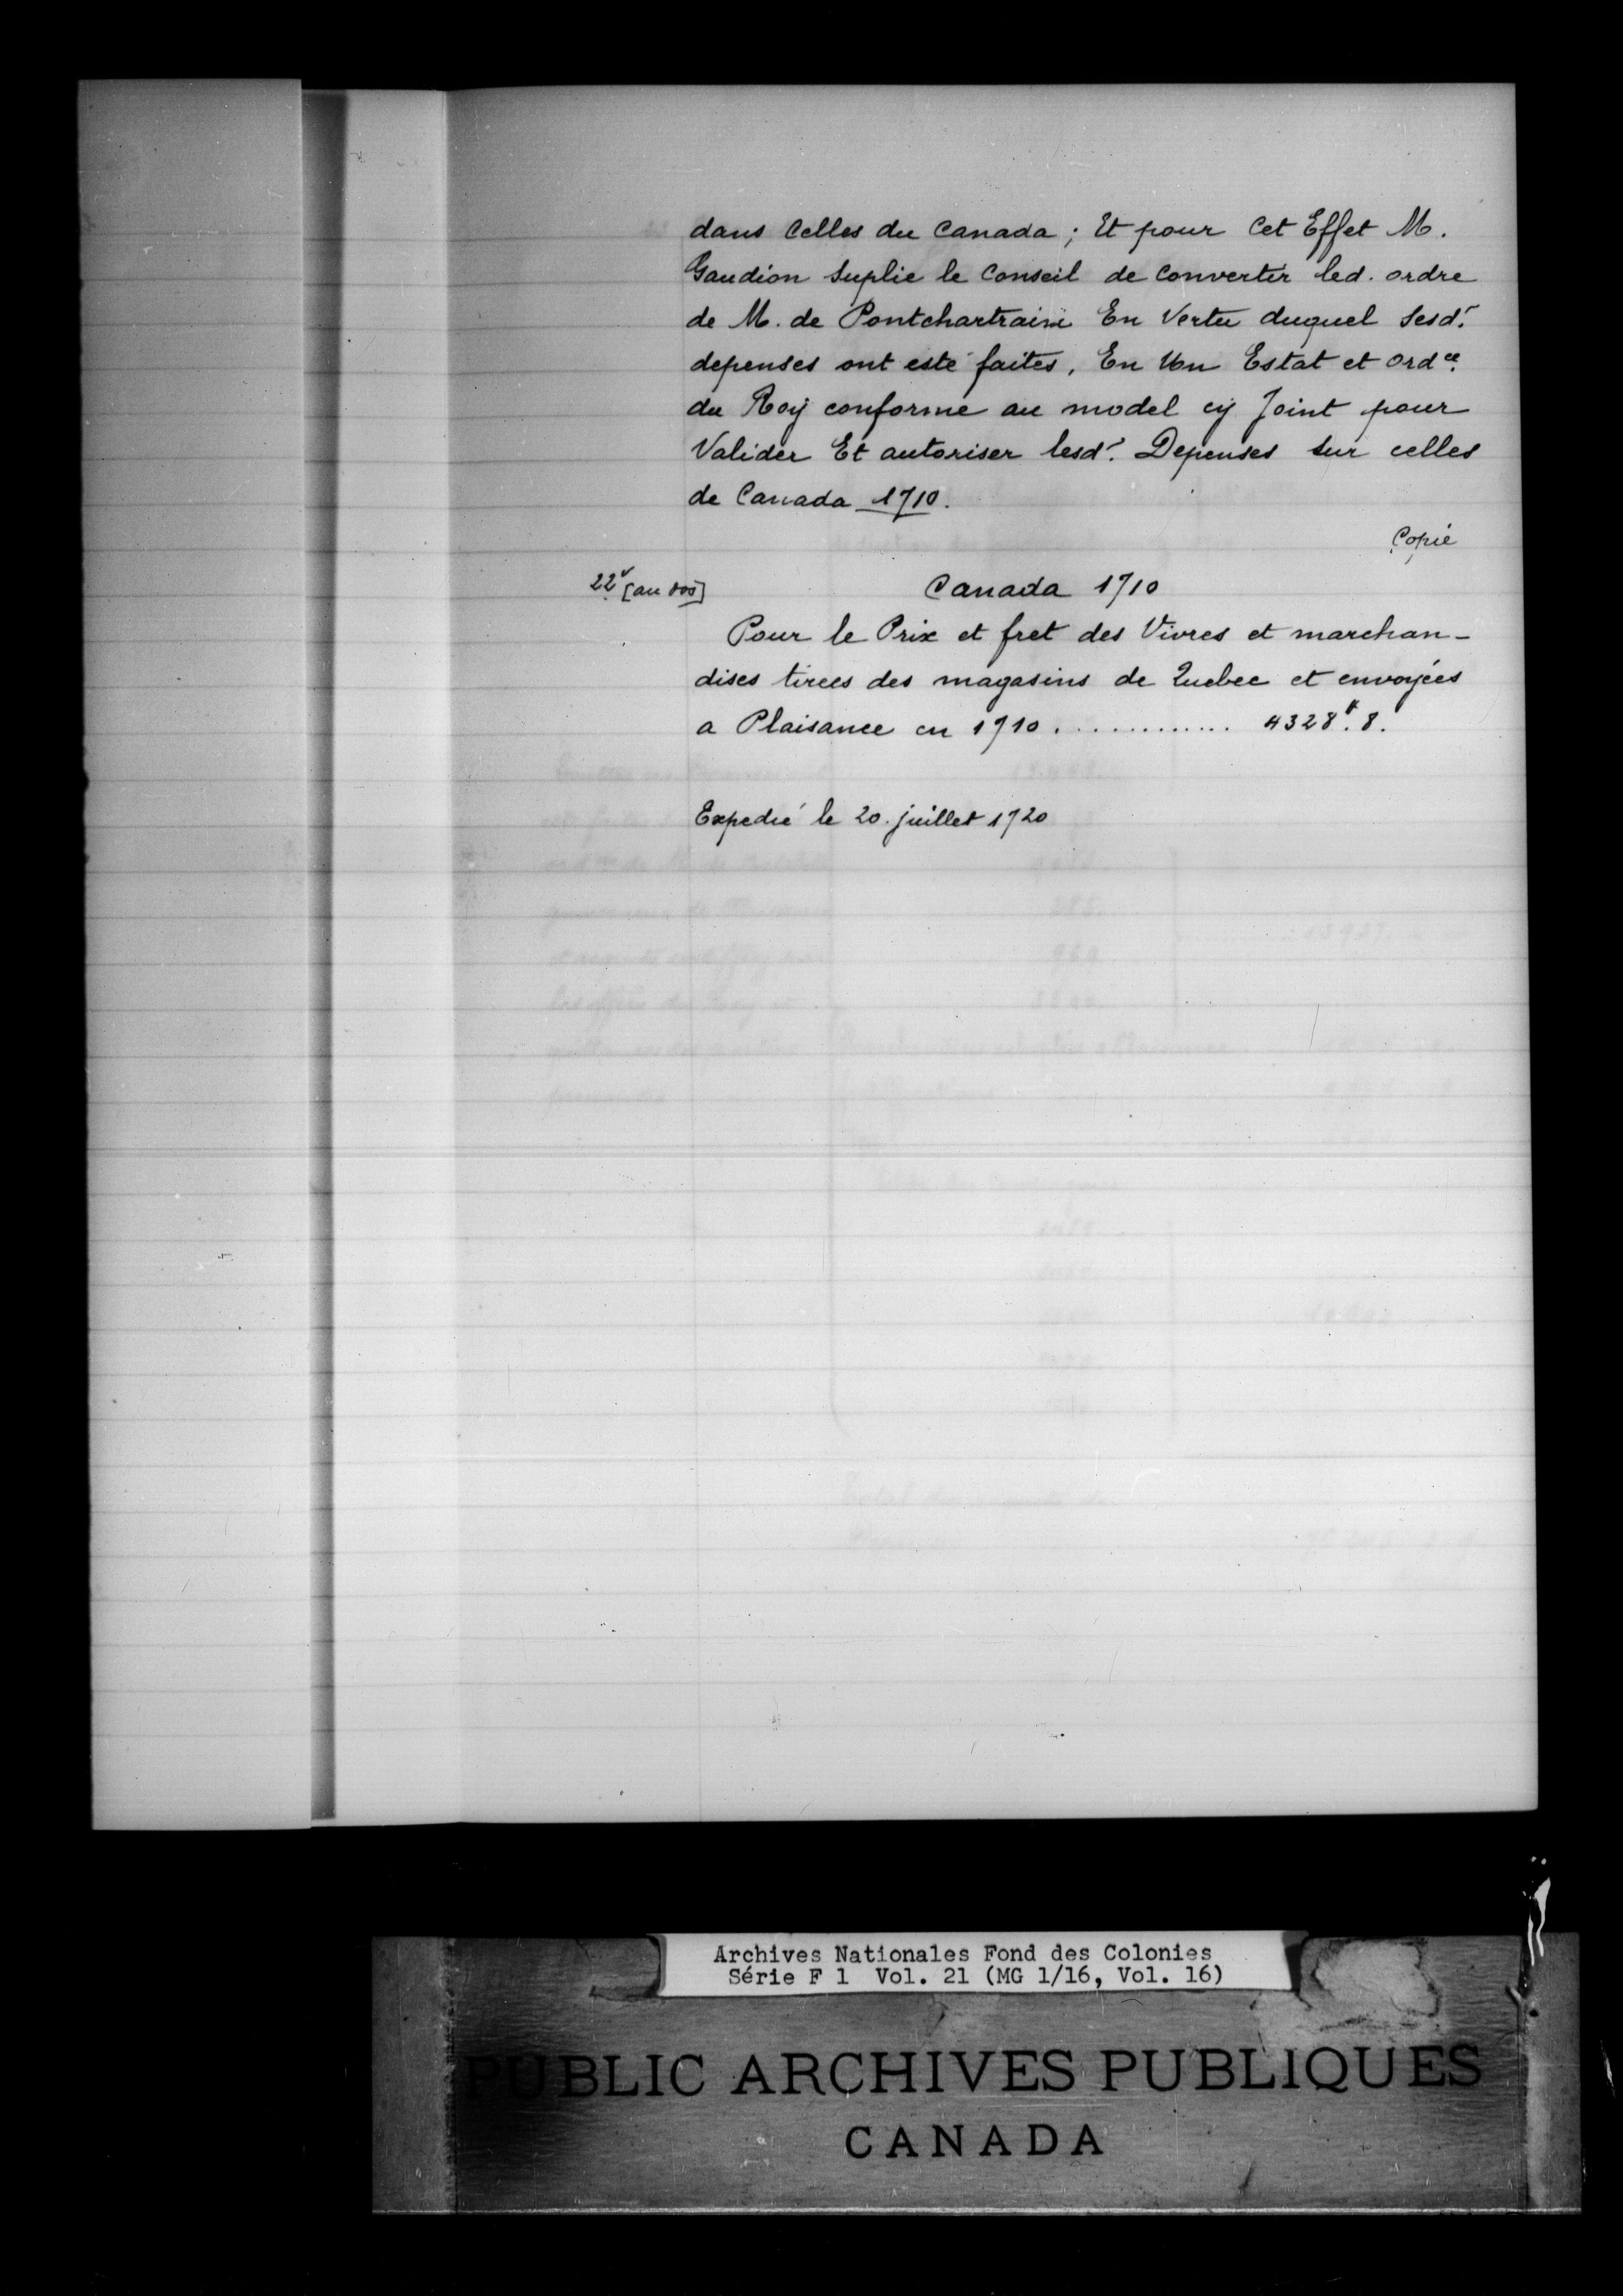 dans Celles du Canada ; Et pour Cet Effet M.
Gaudion Suplie le Conseil de Convertir led. ordre
de M. de Pontchartrain En Vertu duquel Sesd.
depenses ont esté faites, En Un Estat et ord.ce
du Roy conforme au model cy Joint pour
Valider Et autoriser lesd. Depenses sur celles
de Canada 1710.
Copié
22v [au dos]
Canada 1710
Pour le Prix et fret des Vivres et marchan-
dises tirees des magasins de Quebec et envoyées
a Plaisance en 1710 ............. 4328#. 8.
Expedié le 20. juillet 1720
Archives Nationales Fond des Colonies
Série F 1 Vol. 21 (MG 1/16, Vol. 16)
PUBLIC ARCHIVES PUBLIQUES
CANADA